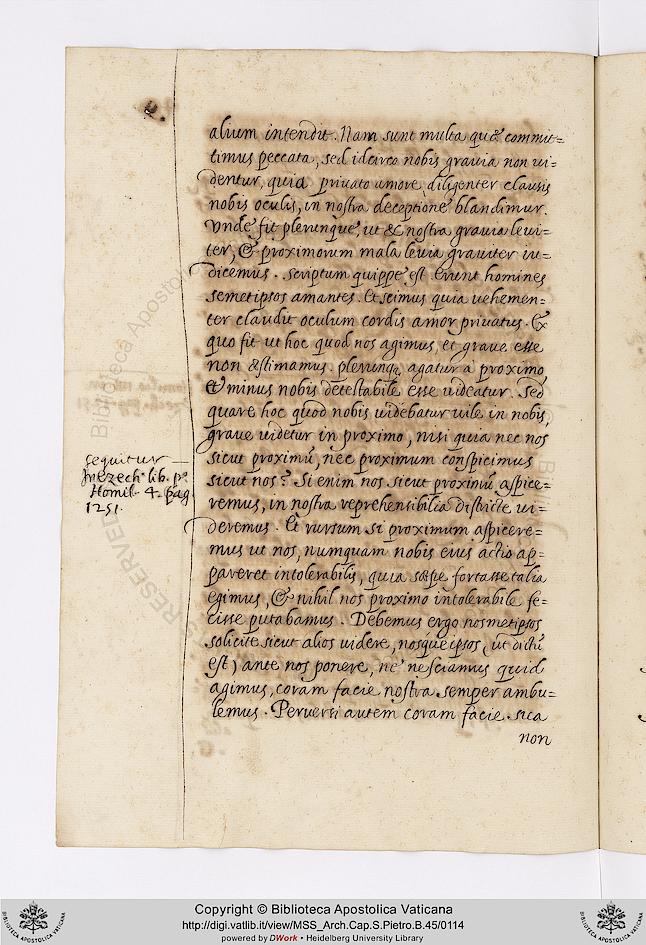 alium intendit. Nam sunt multa quę commit=
timus peccata, sed idcirco nobis gravia non ui=
dentur, quia privato amore, diligenter clausis
nobis oculis, in nostra deceptione blandimur.
Vnde fit plerunque, ut & nostra gravia leui=
ter, & proximorum mala levia graviter iu=
dicemus. scriptum quippe est Erunt homines
semetipsos amantes. Et scimus quia uehemen=
ter claudit oculum cordis amor privatus. Ex
quo fit ut hoc quod nos agimus, et grave esse
non ęstimamus. plerunque agatur à proximo
& minus nobis detestabile esse uideatur. Sed
quare hoc quod nobis uidebatur uile in nobis,
grave uidetur in proximo, nisi quia nec nos
sicut proximũ, nec proximum conspicimus
sicut nos? Si enim nos sicut proximũ aspice=
remus, in nostra reprehensibilia districte ui=
deremus. Et rursum si proximum aspicere=
mus ut nos, numquam nobis eius actio ap=
pareret intolerabilis, quia sæpe fortasse talia
egimus, & nihil nos proximo intolerabile fe=
cisse putabamus. Debemus ergo nosmetipsos
solicite sicut alios uidere, nosque ipsos (ut dictũ
est) ante nos ponere, ne nesciamus quid
agimus, coram facie nostra semper ambu=
lemus. Perversi autem coram facie sua
non
sequitur
In ezech. lib. po
Homil. 4. pag
1251.
Biblioteca Apostol
RESERVED
Copyright © Biblioteca Apostolica Vaticana
http://digi.vatlib.it/view/MSS_Arch.Cap.S.Pietro.B.45/0114
powered by DWork • Heidelberg University Library